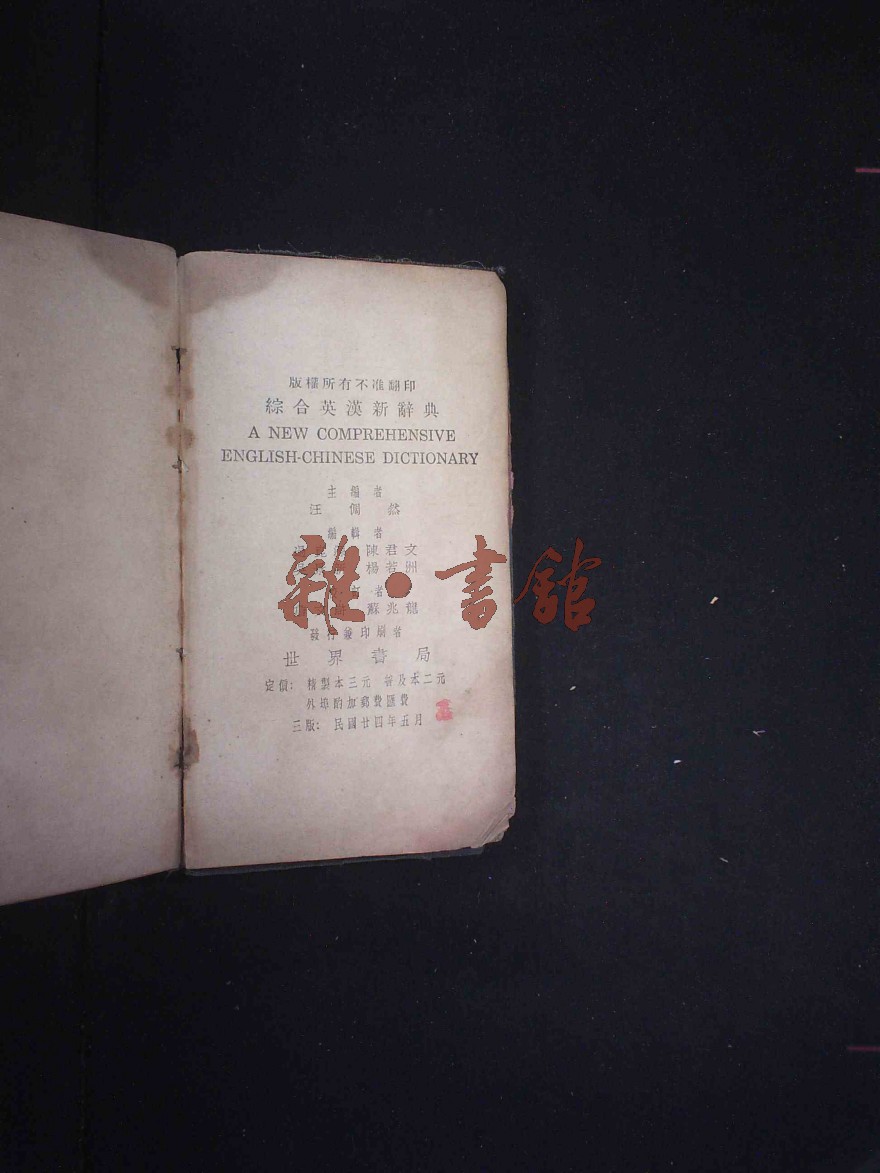 版權所有不准翻印
綜合英漢新辭典
A NEW COMPREHENSIVE
ENGLISH-CHINESE DICTIONARY
主編者
汪倜然
編輯者
陳君文
楊若洲
者
蘇兆龍
發行兼印刷者
世界書局
定價: 精製本三元 普及本二元
外埠酌加郵費匯費
三版: 民國廿四年五月
雜·書館